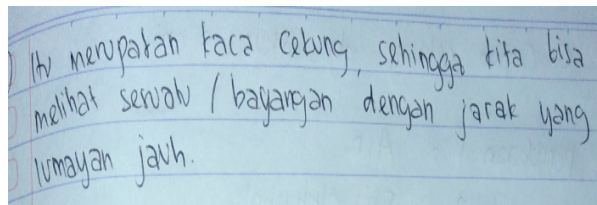 ) Itu merupakan kaca cekung, sehingga kita bisa
melihat semua / bayangan dengan jarak yang
lumayan jauh.